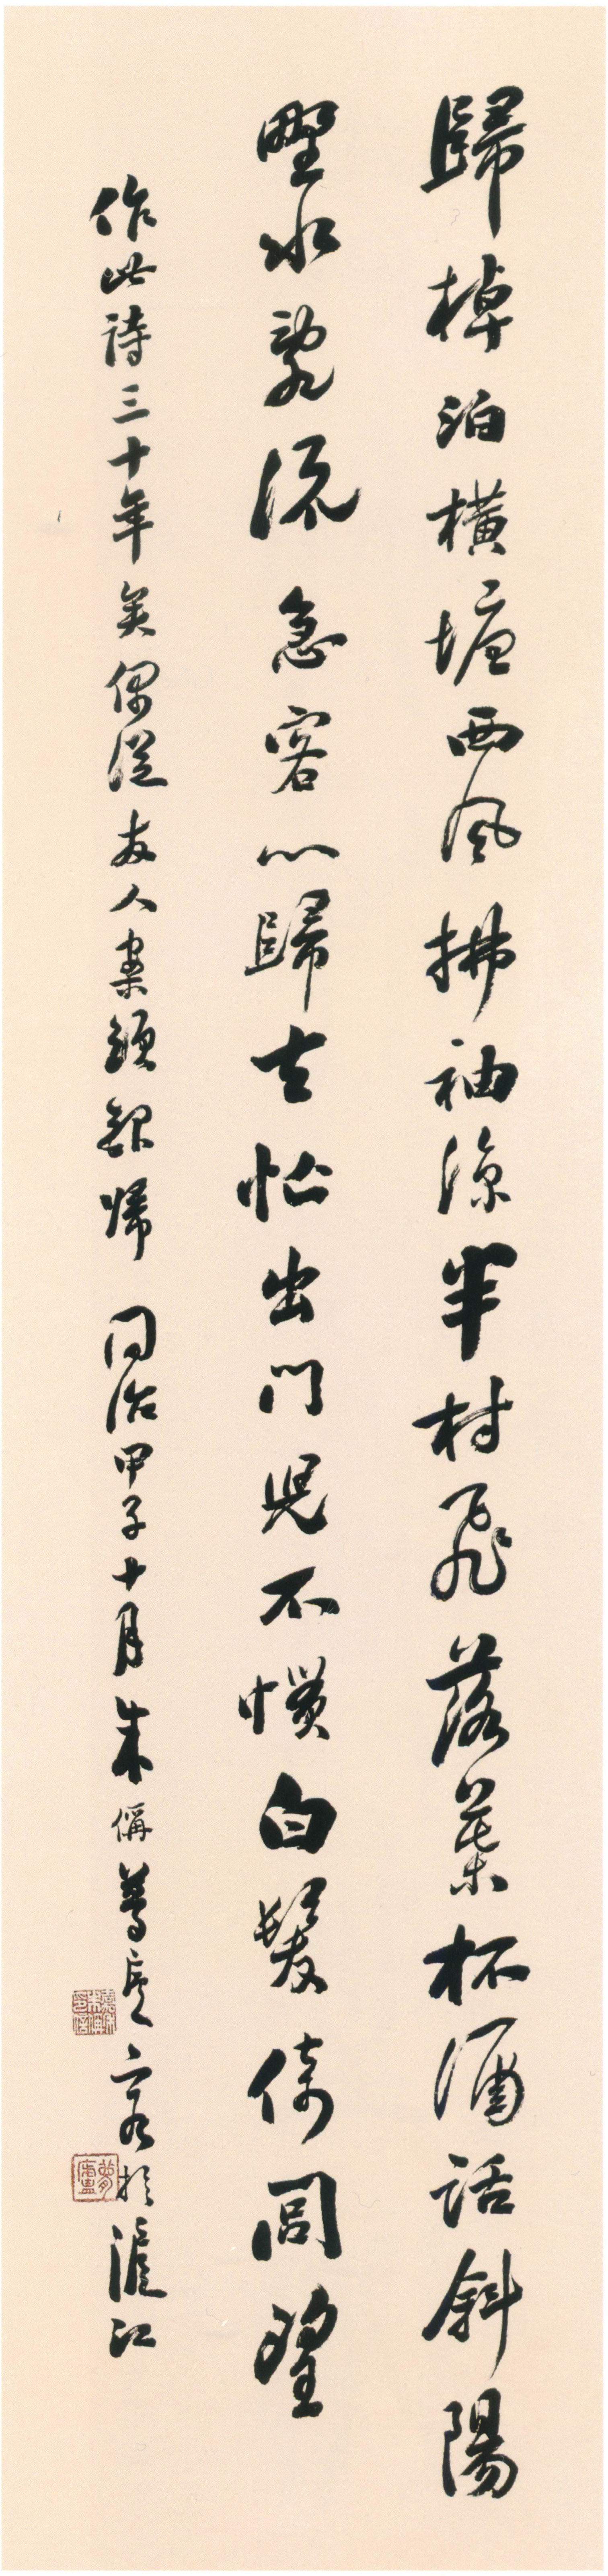 歸棹泊橫塘西風拂袖涼半村飛落葉杯酒話斜陽
野水亂流急客心歸去忙出門兒不慣白髮倚閭望
作此詩三十年矣偶從友人案頭錄歸 同治甲子十月朱偁夢廬客於滬江
夢廬